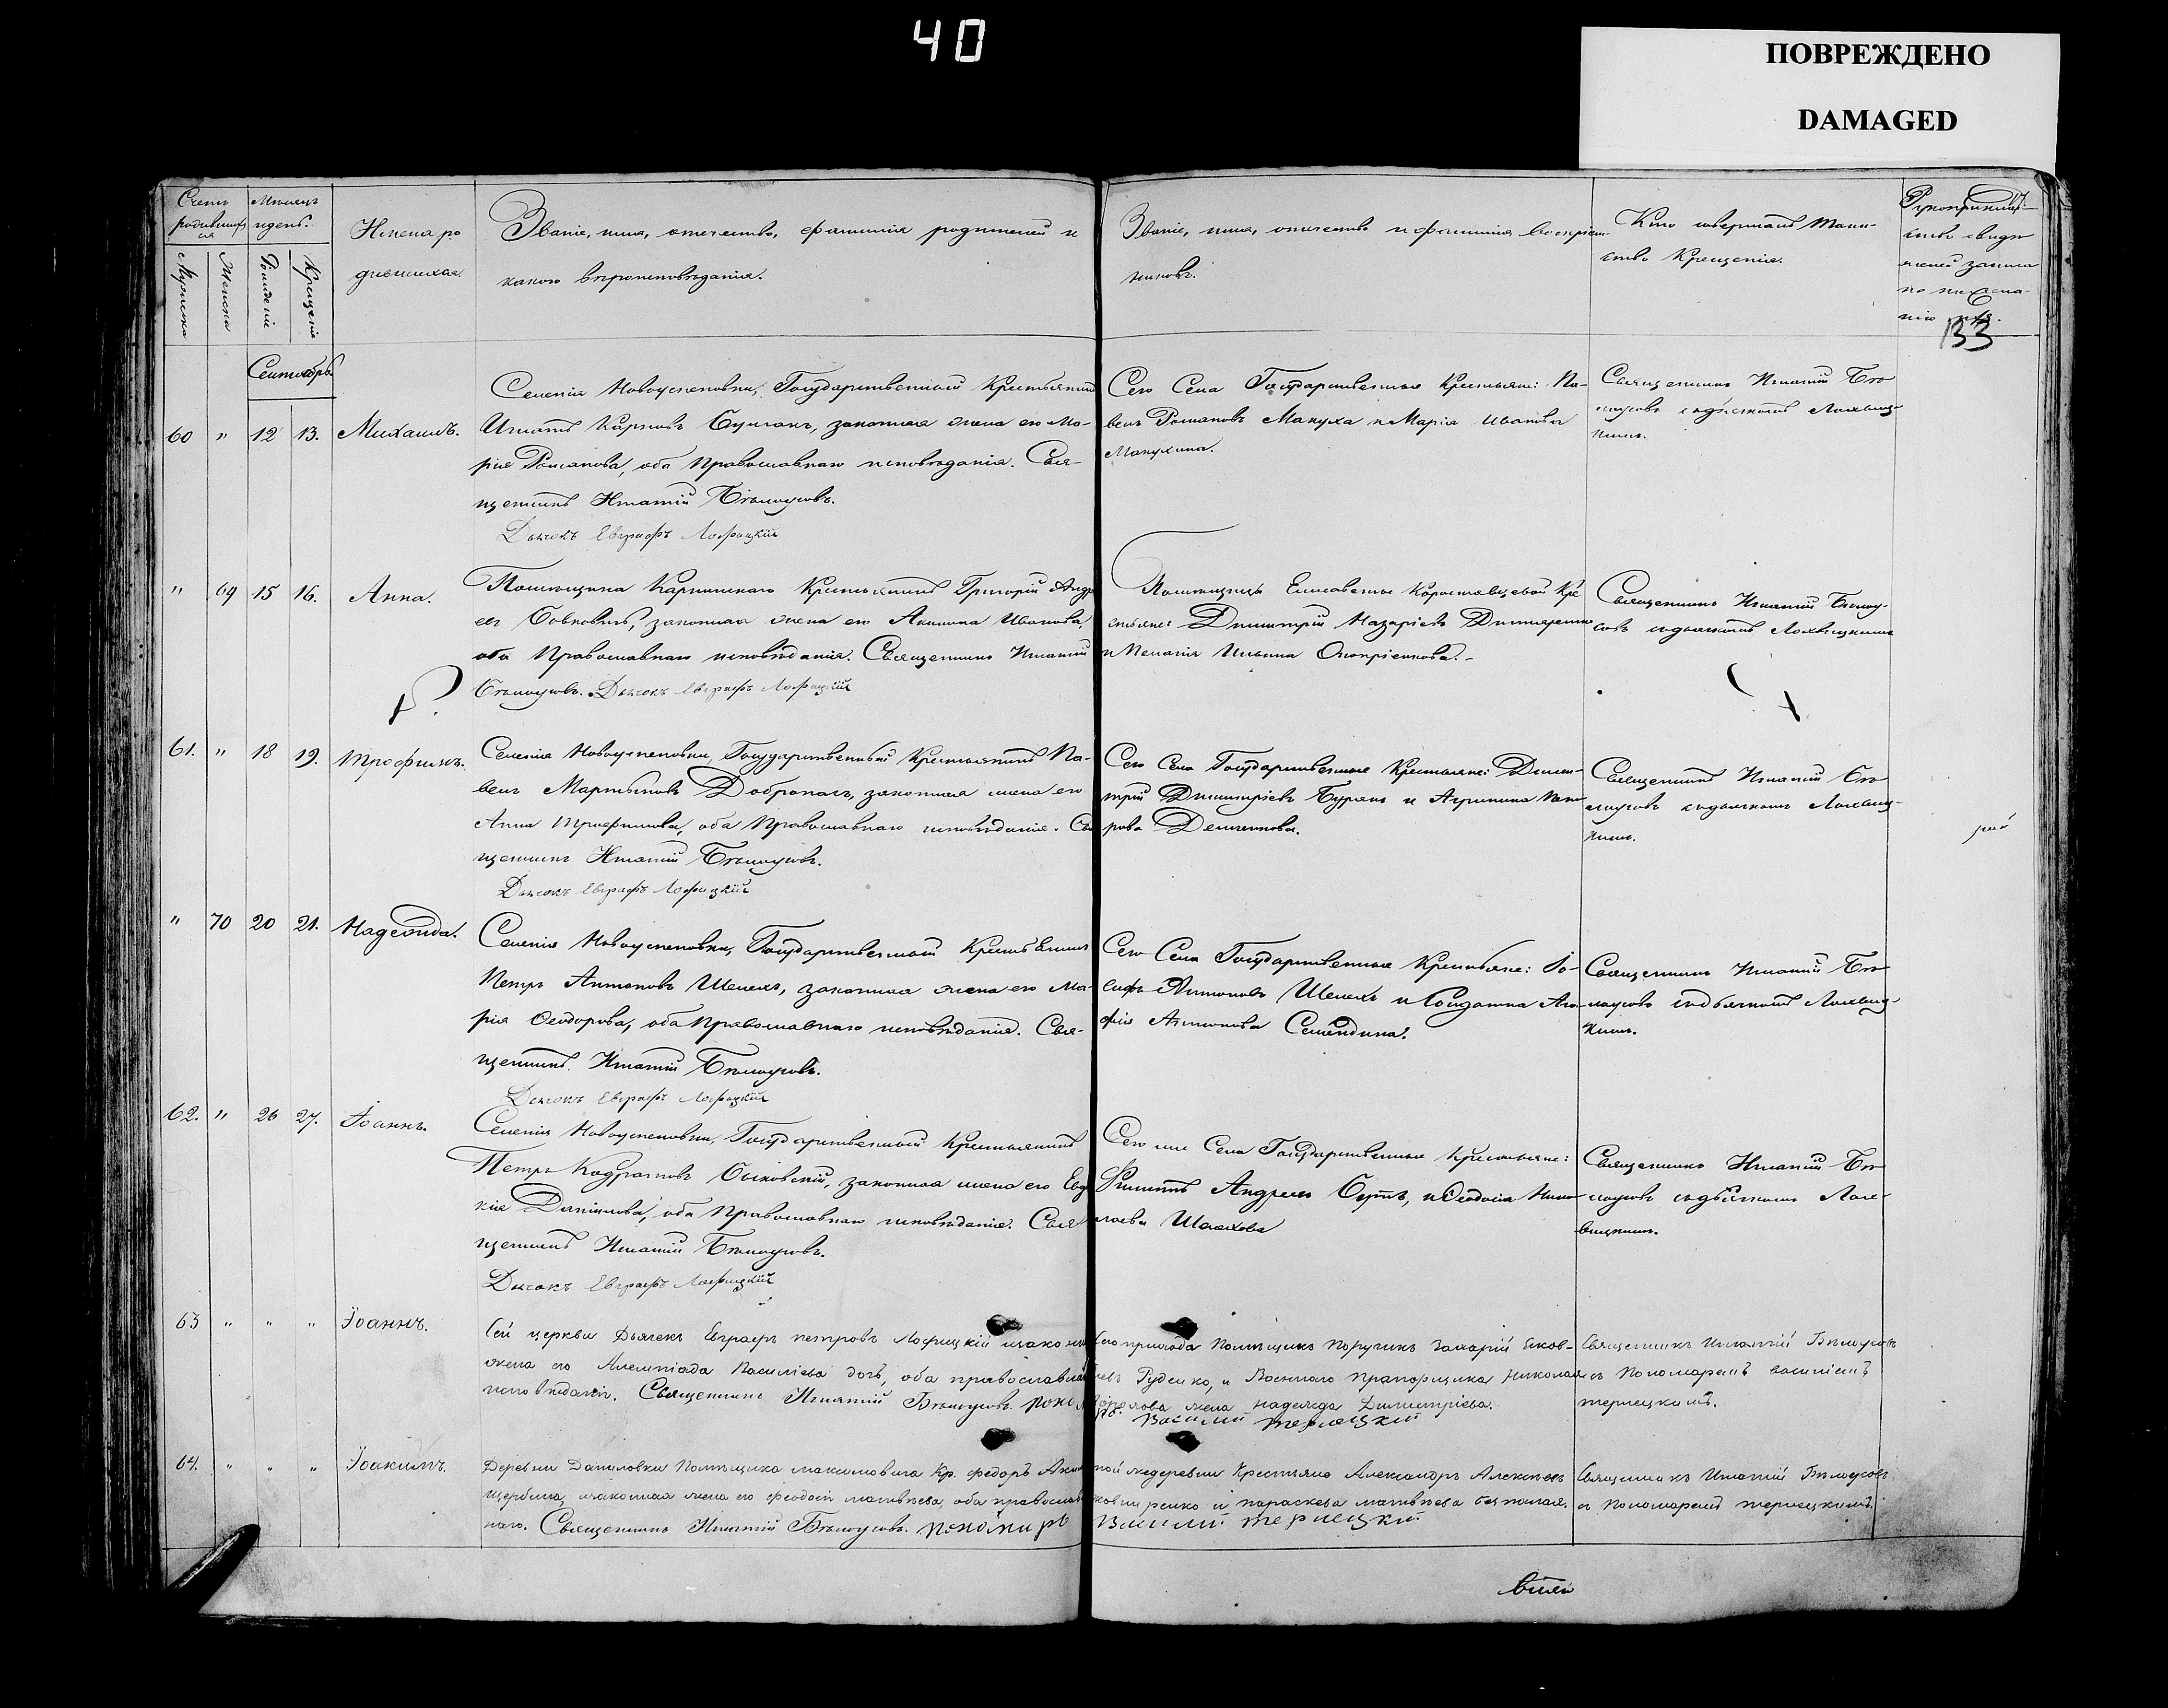 40
ПОВРЕЖДЕНО
DAMAGED
Счетъ родившихся
Мѣсяцъ и день.
Мужеска
Женска
Рожденія
Крещенія
Имена родившихся.
Званіе, имя, отечество, фамилія родителей и
какого вѣроисповѣданія.
Званіе, имя, отечество и фамилія воспріем-
никовъ.
Кто совершалъ таин-
ство Крещенія.
133
Сентябрь.
60 " 12 13. Михаилъ.
Селенія Новоуспеновки, Государственный Крестьянинъ
Игнатъ Карповъ законная жена его Ма-
рія Романова, оба Православнаго исповѣданія. Свя-
щенникъ Игнатій Бѣлоусовъ.
Дьячокъ Евграфъ Лофицкій
Сего Села Государственные Крестьяне: Па-
велъ Романовъ Макуха и Марія Иванова
Макухина.
Священникъ Игнатій Бѣ-
лоусовъ съ дьячкомъ Лофиц-
кимъ.
" 69 15 16. Анна.
Помѣщика Крестьянинъ Григорій Андре-
евъ законная жена его Акилина Иванова,
оба Православнаго исповѣданія. Священникъ Игнатій
Бѣлоусовъ. Дьячокъ Евграфъ Лофицкій
Помѣщицы Елисаветы Коростовцевой Кре-
стьяне Дмитрій Назаріевъ
и Пелагія Ильина Оноприенкова.
Священникъ Игнатій Бѣлоу-
совъ съ дьячкомъ Лофицкимъ
61. " 18 19. Трофимъ.
Селенія Новоуспеновки, Государственный Крестьянинъ Па-
велъ Мартыновъ Добропасъ, законная жена его
Анна Трофимова, оба Православнаго исповѣданія. Свя-
щенникъ Игнатій Бѣлоусовъ.
Дьячокъ Евграфъ Лофицкій
Сего Села Государственные Крестьяне: Дими-
трій Димитріевъ Бурякъ и Агрипина Пет-
рова Демченкова.
Священникъ Игнатій Бѣ-
лоусовъ съ дьячкомъ Лофиц-
кимъ.
" 70 20 21. Надежда.
Селенія Новоуспеновки, Государственный Крестьянинъ
Петръ Антоновъ Шелехъ, законная жена его Ма-
рія Ѳеодорова, оба Православнаго исповѣданія. Свя-
щенникъ Игнатій Бѣлоусовъ.
Дьячокъ Евграфъ Лофицкій
Сего Села Государственные Крестьяне: Іо-
сифъ Антоновъ Шелехъ и Солдатка Ага-
фія Антонова
Священникъ Игнатій Бѣ-
лоусовъ съ дьячкомъ Лофиц-
кимъ.
62. " 26 27. Іоаннъ.
Селенія Новоуспеновки, Государственный Крестьянинъ
Петръ Кодратовъ законная жена его Евдо-
кія Даніилова, оба Православнаго исповѣданія. Свя-
щенникъ Игнатій Бѣлоусовъ.
Дьячокъ Евграфъ Лофицкій
Сего же Села Государственные Крестьяне:
Филиппъ Андреевъ и Ѳеодосія Нико-
лаева
Священникъ Игнатій Бѣ-
лоусовъ съ дьячкомъ Лоф-
ицкимъ.
63 " " " Іоаннъ.
Сей церкви Дьячекъ Евграфъ Петровъ Лофицкій и законная
жена его Алемпіада Василіева дочь, оба православнаго
исповѣданія. Священникъ Игнатій Бѣлоусовъ. Пономарь
Сего прихода Помѣщикъ Поручикъ Захарій Яков-
левъ Руденко, и Военнаго Прапорщика Николая
жена Надежда Димитріева.
Василій Тернецкій
Священникъ Игнатій Бѣлоусовъ
съ Пономаремъ Василіемъ
Тернецкимъ.
64. " " " Іоакимъ.
Деревни Даниловки Помѣщика Максимовича Кр. Федоръ
Щербина, законная жена его Феодосія Матвѣева, оба православ-
наго. Священникъ Игнатій Бѣлоусовъ. Пономарь
той же деревни Крестьяне Александръ Алексѣевъ
и Параскева Матвѣева
Василій Тернецкій
Священникъ Игнатій Бѣлоусовъ
съ Пономаремъ Тернецкимъ.